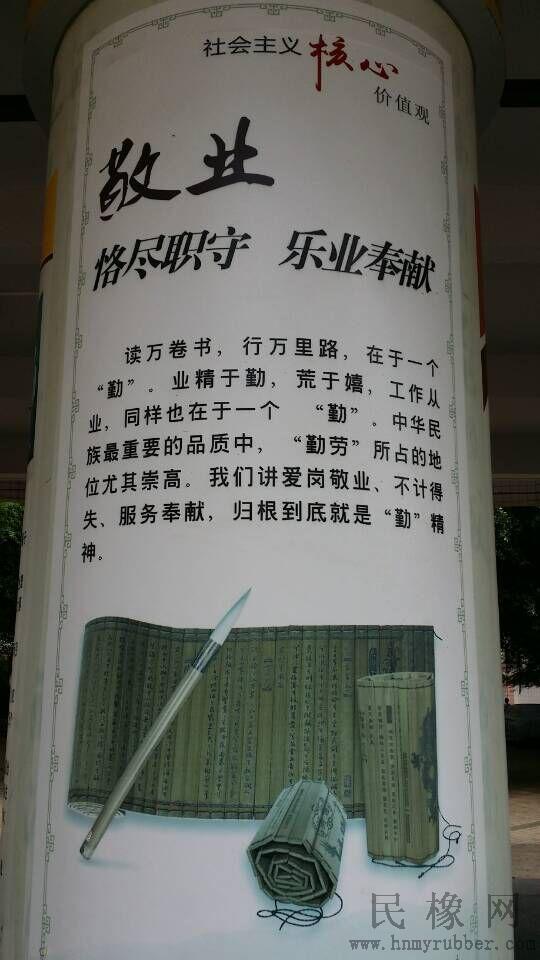 社会主义核心
价值观
敬业
恪尽职守 乐业奉献
读万卷书，行万里路，在于一个
“勤”。业精于勤，荒于嬉，工作从
业，同样也在于一个 “勤”。中华民
族最重要的品质中，“勤劳”所占的地
位尤其崇高。我们讲爱岗敬业、不计得
失、服务奉献，归根到底就是“勤”精
神。
民橡网
www.hnmyrubber.com